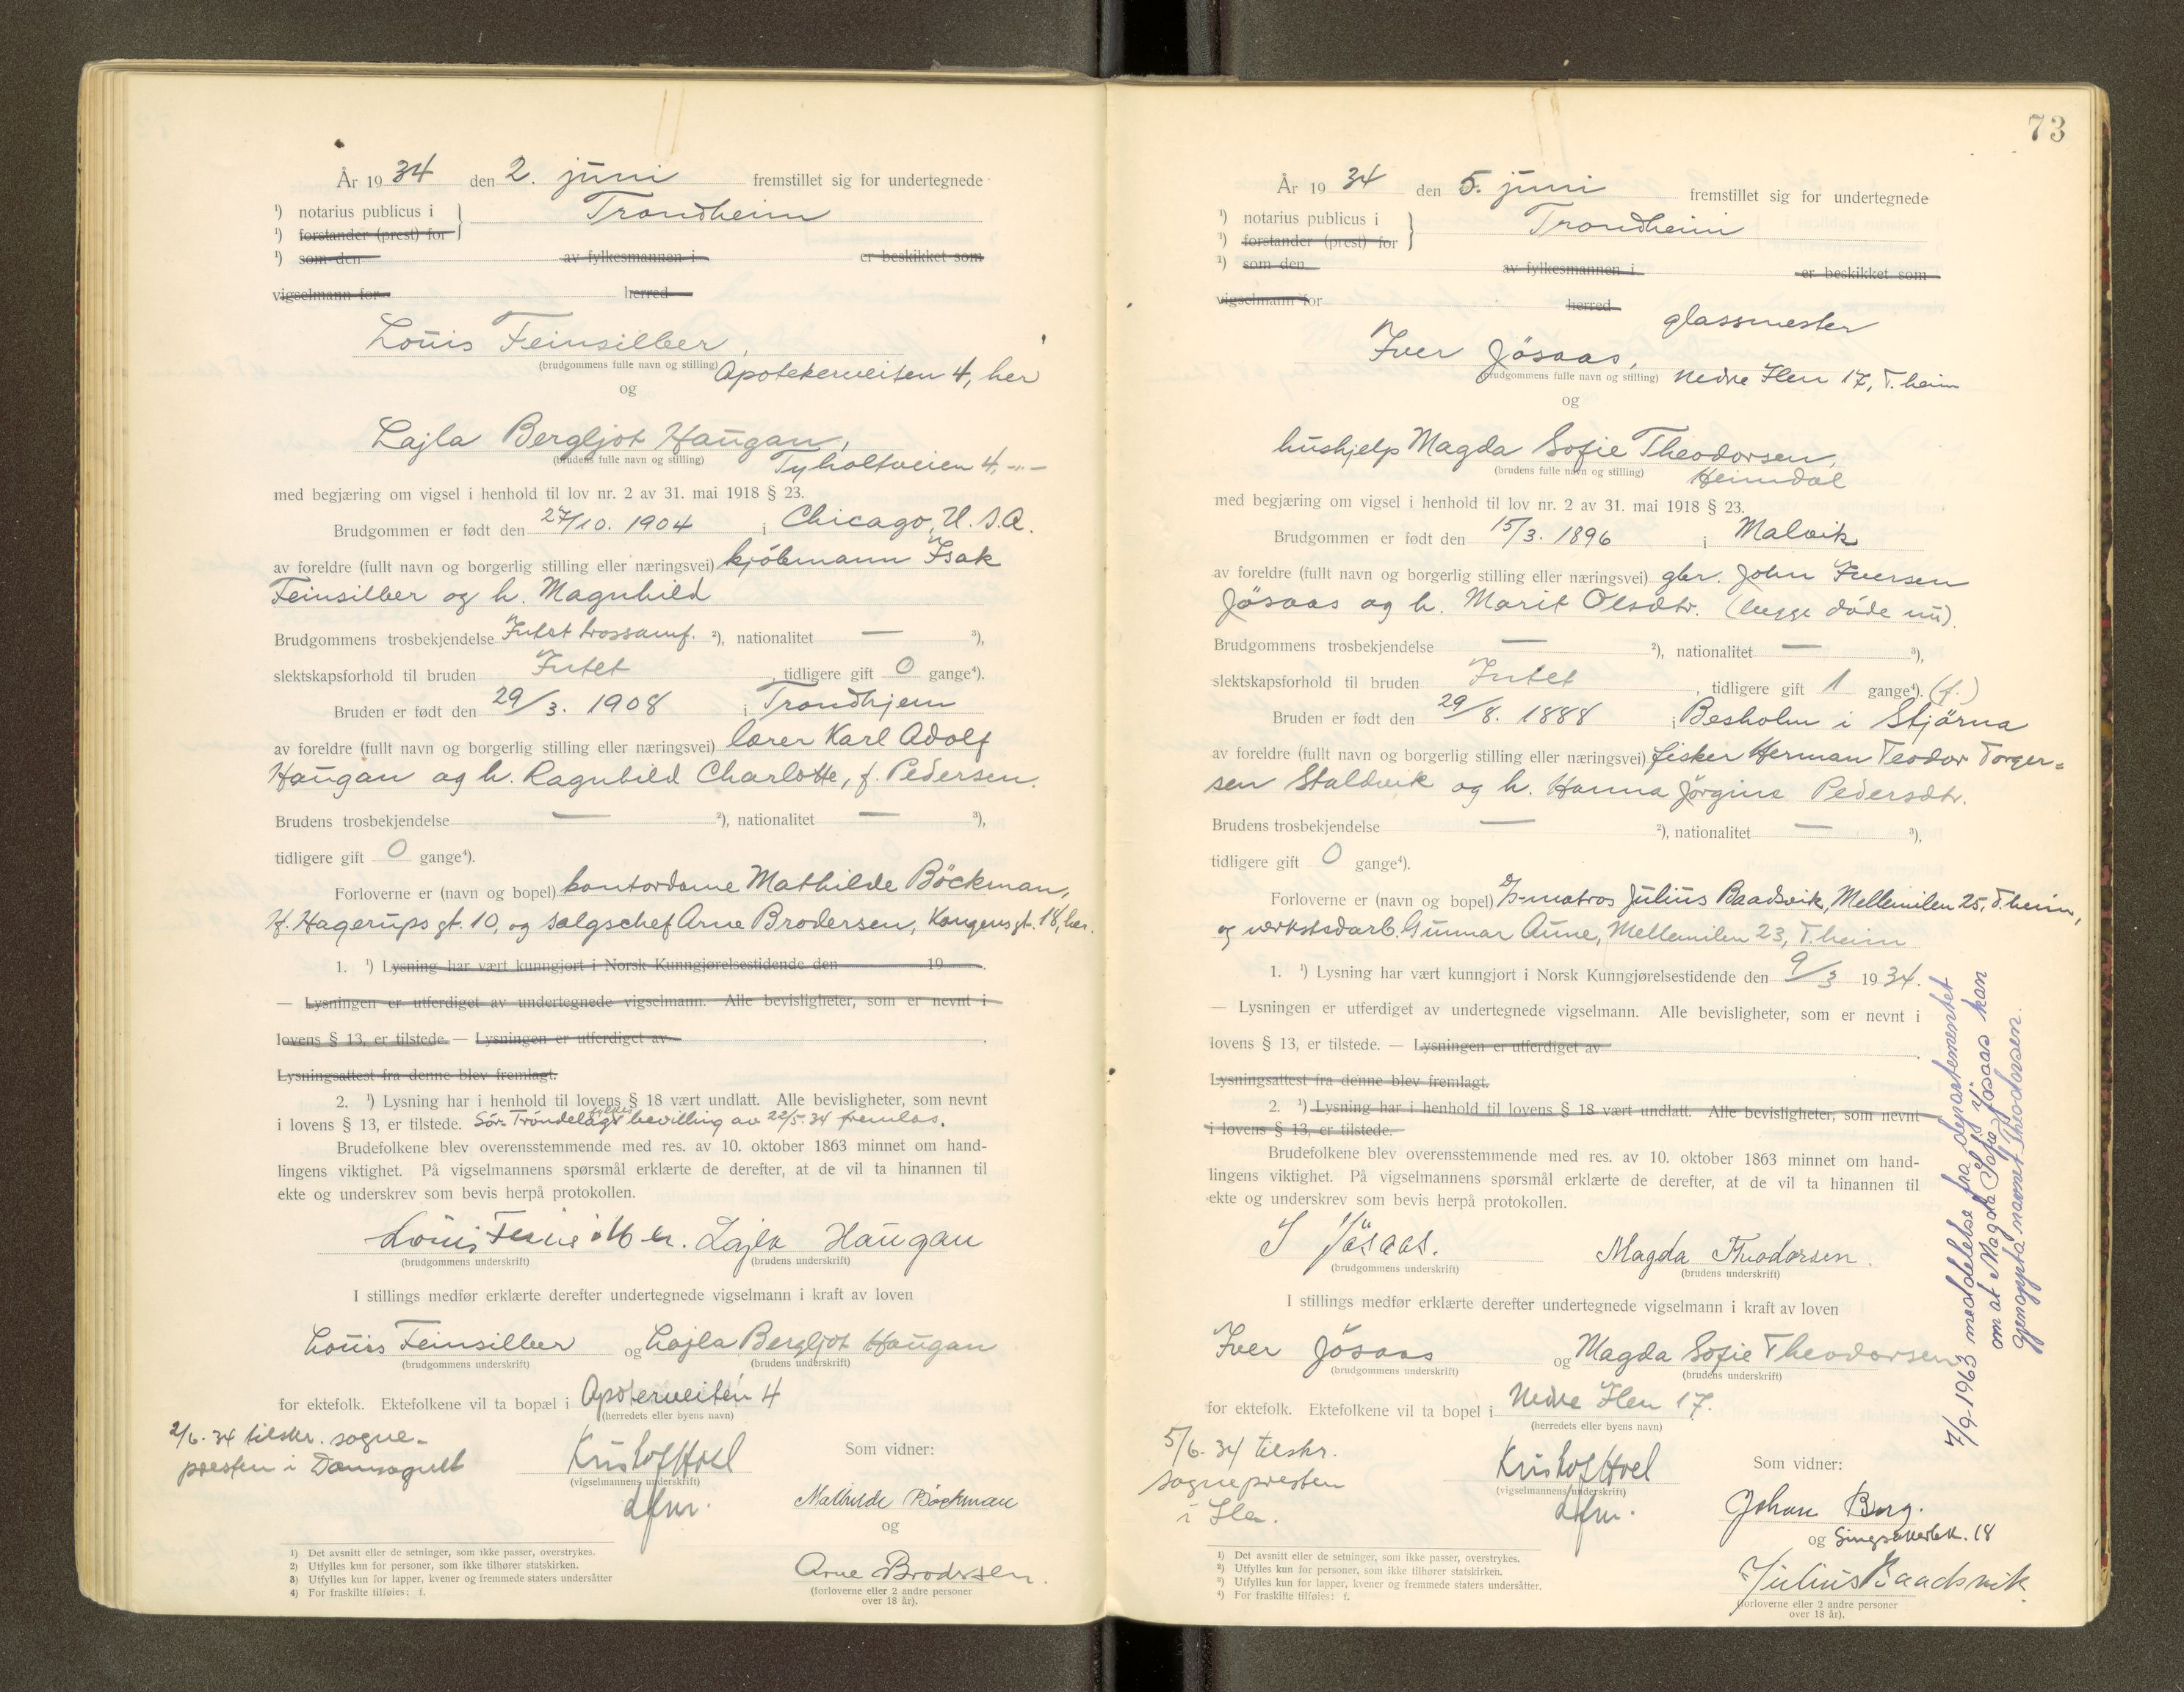 År 19 34 den 2. juni fremstillet sig for undertegnede
¹) notarius publicus i } Trondheim
¹) forstander (prest) for
¹) som den av fylkesmannen i er beskikket som
vigselmann for herred
Louis Feinsilber,
(brudgommens fulle navn og stilling) Apotekerveiten 4, her
og
Lajla Bergljot Haugan,
(brudens fulle navn og stilling) Tyholtveien 4, -"-
med begjæring om vigsel i henhold til lov nr. 2 av 31. mai 1918 § 23.
Brudgommen er født den 27/10. 1904 i Chicago, U.S.A.
av foreldre (fullt navn og borgerlig stilling eller næringsvei) kjöbmann Isak
Feinsilber og h. Magnhild
Brudgommens trosbekjendelse Intet trossamf. ²), nationalitet — ³),
slektskapsforhold til bruden Intet, tidligere gift 0 gange⁴).
Bruden er født den 29/3. 1908 i Trondhjem
av foreldre (fullt navn og borgerlig stilling eller næringsvei) lærer Karl Adolf
Haugan og h. Ragnhild Charlotte, f. Pedersen.
Brudens trosbekjendelse — ²), nationalitet — ³),
tidligere gift 0 gange⁴).
Forloverne er (navn og bopel) kontordame Mathilde Böckman,
H. Hagerups gt. 10, og salgschef Arne Brodersen, Kongens gt. 18, her.
1. ¹) Lysning har vært kunngjort i Norsk Kunngjørelsestidende den 19 .
— Lysningen er utferdiget av undertegnede vigselmann. Alle bevisligheter, som er nevnt i
lovens § 13, er tilstede. — Lysningen er utferdiget av .
Lysningsattest fra denne blev fremlagt.
2. ¹) Lysning har i henhold til lovens § 18 vært undlatt. Alle bevisligheter, som nevnt
i lovens § 13, er tilstede. Sör-Tröndelags fylkes bevilling av 22/5-34 fremlas.
Brudefolkene blev overensstemmende med res. av 10. oktober 1863 minnet om hand-
lingens viktighet. På vigselmannens spørsmål erklærte de derefter, at de vil ta hinannen til
ekte og underskrev som bevis herpå protokollen.
Louis Feinsilber. Lajla Haugan
(brudgommens underskrift) (brudens underskrift)
I stillings medfør erklærte derefter undertegnede vigselmann i kraft av loven
Louis Feinsilber og Lajla Bergljot Haugan
(brudgommens underskrift) (brudens underskrift)
for ektefolk. Ektefolkene vil ta bopæl i Apoterveiten 4
(herredets eller byens navn)
2/6. 34 tilskr. sogne-
presten i Domsognet
Kristof Hoel
(vigselmannens underskrift)
dfm.
Som vidner:
Mathilde Böckman
og
Arne Brodersen.
(forloverne eller 2 andre personer
over 18 år).
1) Det avsnitt eller de setninger, som ikke passer, overstrykes.
2) Utfylles kun for personer, som ikke tilhører statskirken.
3) Utfylles kun for lapper, kvener og fremmede staters undersåtter
4) For fraskilte tilføies: f.
73
År 19 34 den 5. juni fremstillet sig for undertegnede
¹) notarius publicus i } Trondheim
¹) forstander (prest) for
¹) som den av fylkesmannen i er beskikket som
vigselmann for herred
glassmester
Iver Jösaas,
(brudgommens fulle navn og stilling) Nedre Ilen 17, T.heim
og
hushjelp Magda Sofie Theodorsen,
(brudens fulle navn og stilling) Heimdal
med begjæring om vigsel i henhold til lov nr. 2 av 31. mai 1918 § 23.
Brudgommen er født den 15/3. 1896 i Malvik
av foreldre (fullt navn og borgerlig stilling eller næringsvei) gbr. John Iversen
Jösaas og h. Marit Olsdtr. (begge döde nu).
Brudgommens trosbekjendelse — ²), nationalitet — ³),
slektskapsforhold til bruden Intet, tidligere gift 1 gange⁴). (f.)
Bruden er født den 29/8. 1888 i Besholm i Stjörna
av foreldre (fullt navn og borgerlig stilling eller næringsvei) fisker Herman Teodor Torger=
sen Staldvik og h. Hanna Jörgine Pedersdtr.
Brudens trosbekjendelse — ²), nationalitet — ³),
tidligere gift 0 gange⁴).
Forloverne er (navn og bopel) D/S-matros Julius Baadsvik, Mellemilen 25, T.heim,
og verkstedarb. Gunnar Aune, Mellemilen 23, T.heim
1. ¹) Lysning har vært kunngjort i Norsk Kunngjørelsestidende den 9/3 19 34.
— Lysningen er utferdiget av undertegnede vigselmann. Alle bevisligheter, som er nevnt i
lovens § 13, er tilstede. — Lysningen er utferdiget av .
Lysningsattest fra denne blev fremlagt.
2. ¹) Lysning har i henhold til lovens § 18 vært undlatt. Alle bevisligheter, som nevnt
i lovens § 13, er tilstede.
Brudefolkene blev overensstemmende med res. av 10. oktober 1863 minnet om hand-
lingens viktighet. På vigselmannens spørsmål erklærte de derefter, at de vil ta hinannen til
ekte og underskrev som bevis herpå protokollen.
I Jösaas. Magda Theodorsen.
(brudgommens underskrift) (brudens underskrift)
I stillings medfør erklærte derefter undertegnede vigselmann i kraft av loven
Iver Jösaas og Magda Sofie Theodorsen
(brudgommens underskrift) (brudens underskrift)
for ektefolk. Ektefolkene vil ta bopel i Nedre Ilen 17.
(herredets eller byens navn)
5/6. 34 tilskr.
sognepresten
i Ilen.
Kristof Hoel
(vigselmannens underskrift)
dfm.
Som vidner:
Johan Berg.
og Singsakerbk. 18
Julius Baadsvik.
(forloverne eller 2 andre personer
over 18 år).
¹) Det avsnitt eller de setninger, som ikke passer, overstrykes.
²) Utfylles kun for personer, som ikke tilhører statskirken.
³) Utfylles kun for lapper, kvener og fremmede staters undersåtter.
⁴) For fraskilte tilføies: f.
7/9-1963 meddelelse fra departementet
om at Magda Sofie Jösaas kan
gjenoppta navnet Theodorsen.